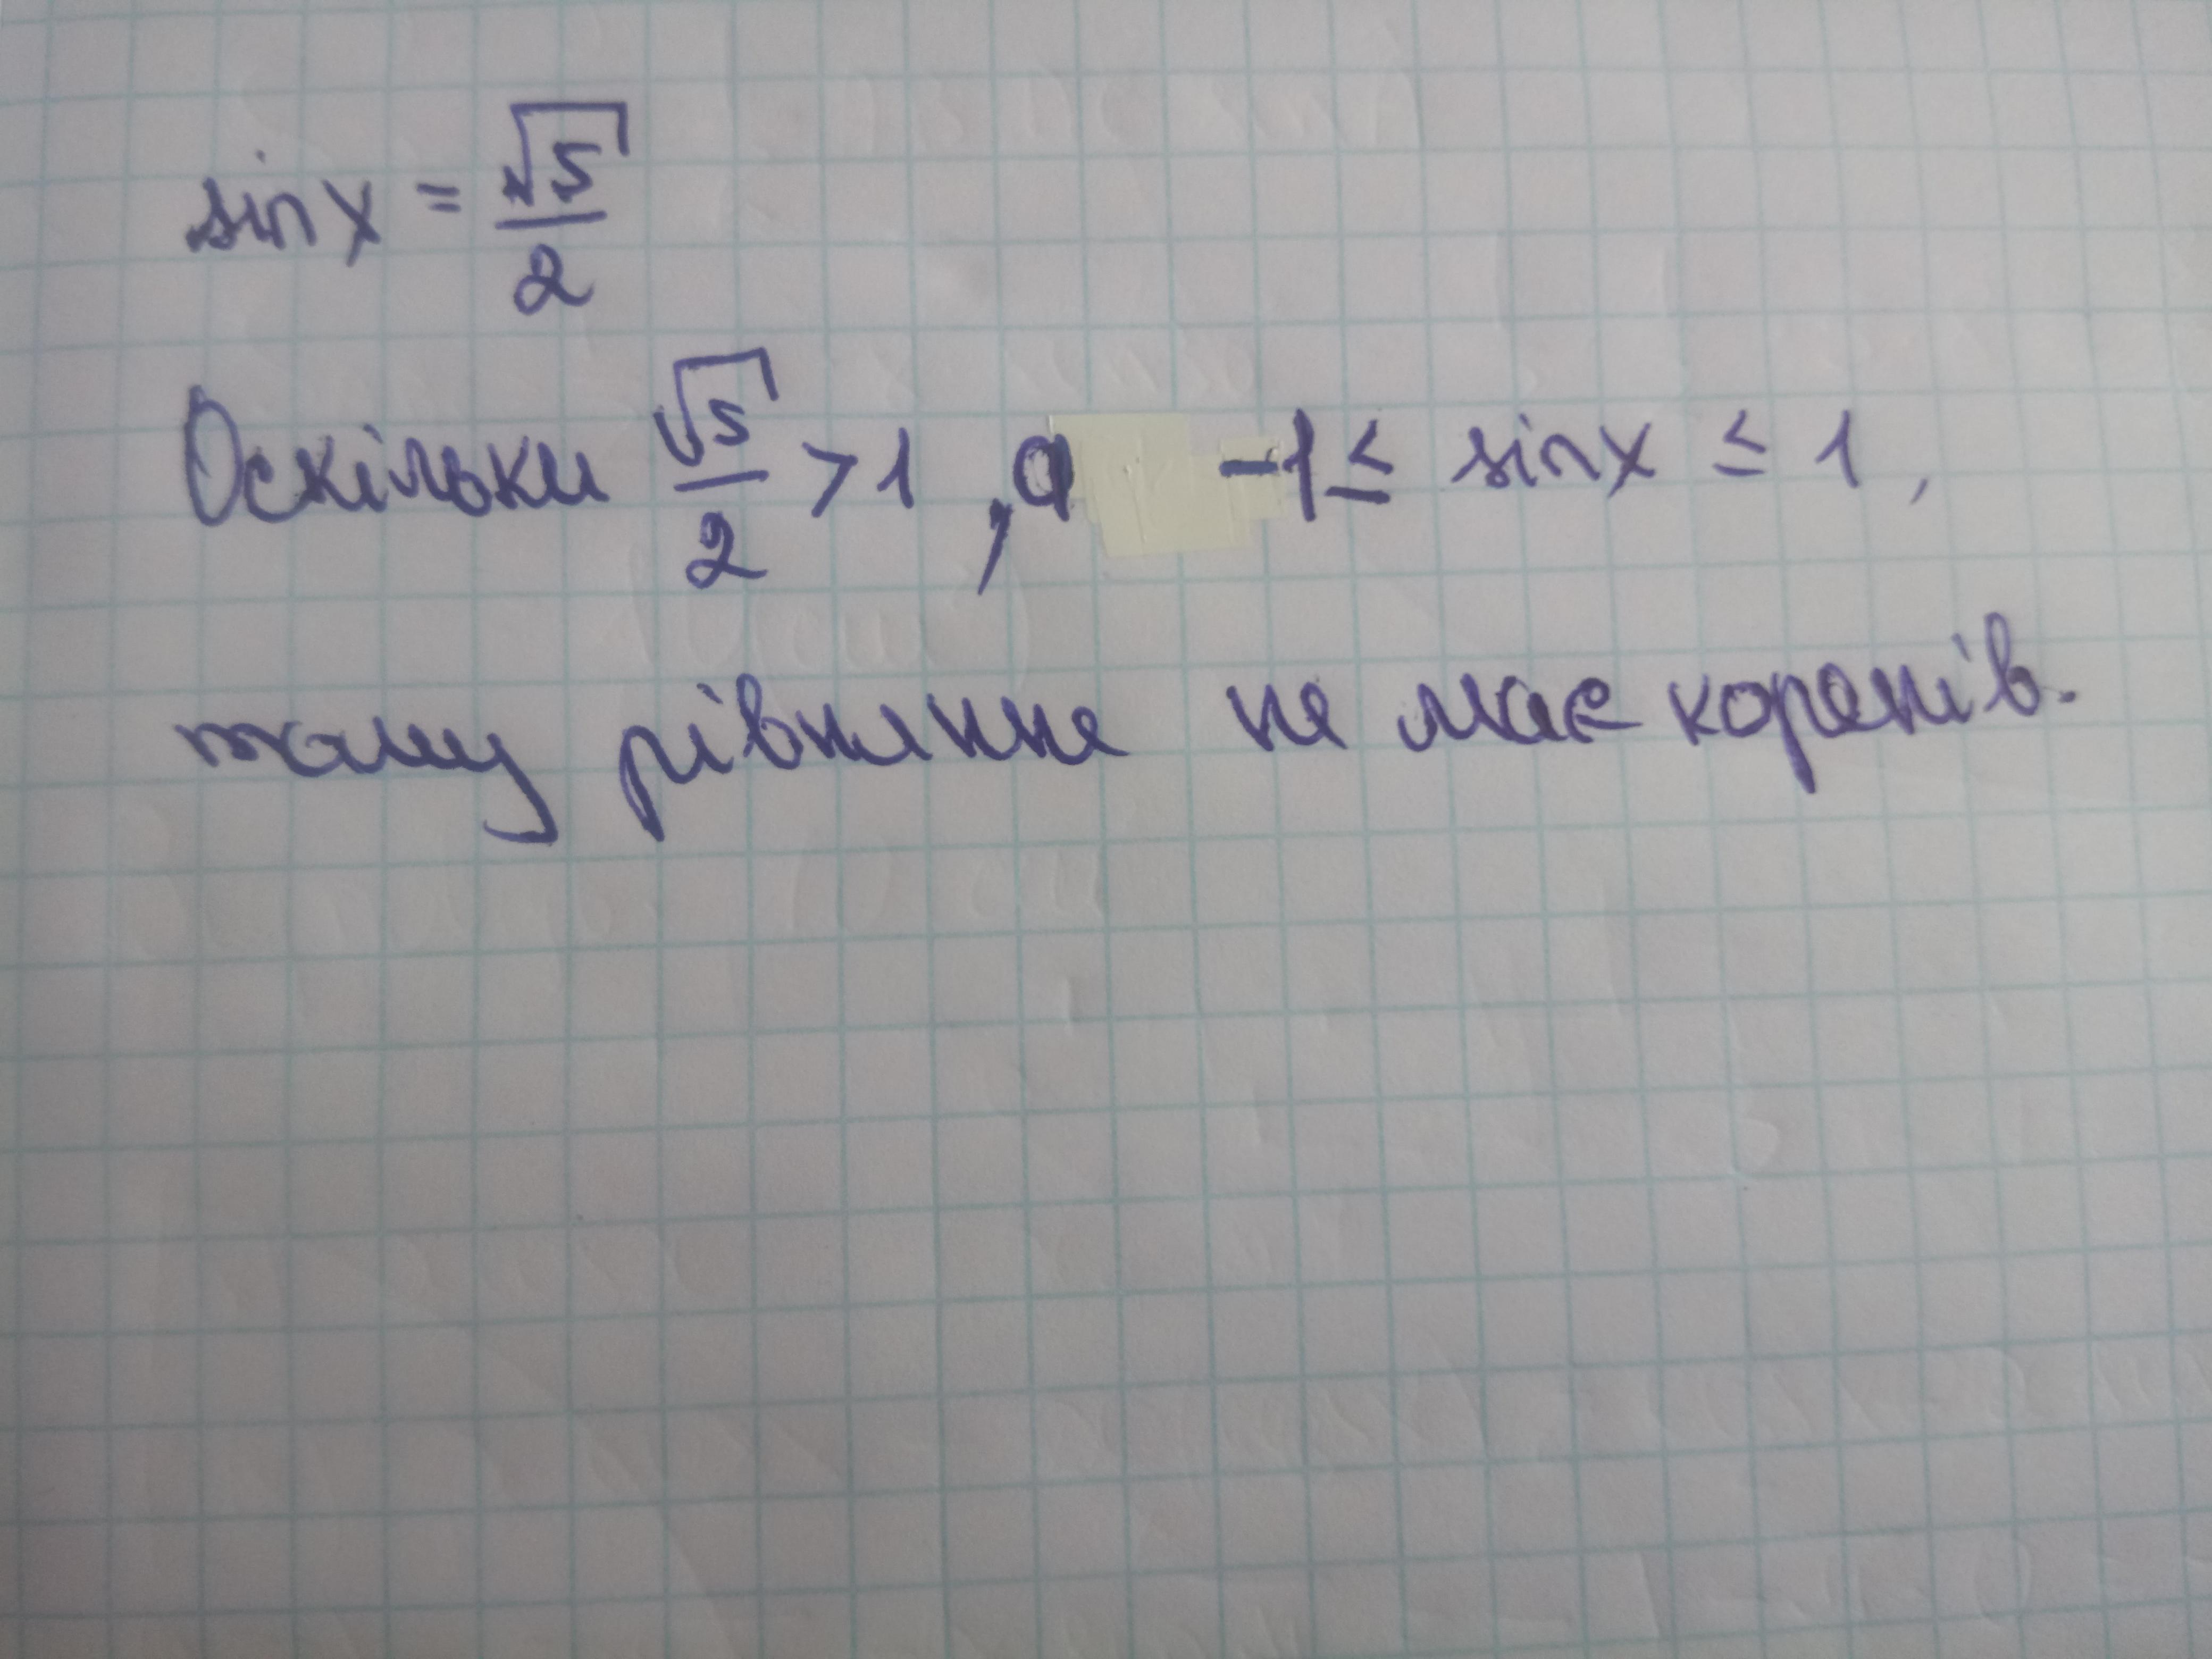 sin x = √5/2
Оскільки √5/2 > 1, а -1 ≤ sin x ≤ 1,
тому рівняння не має коренів.